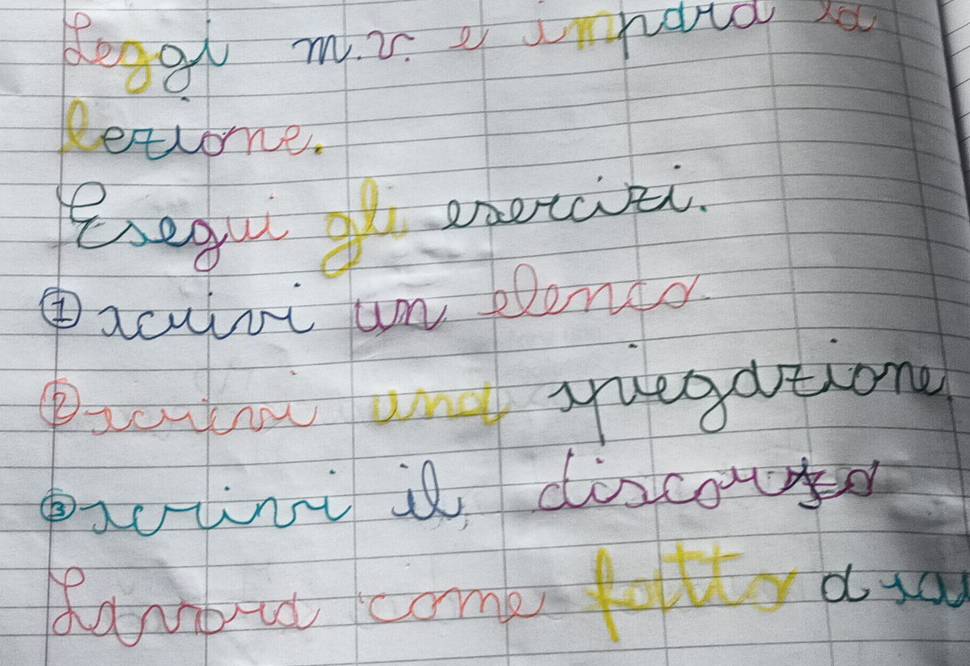 Leggi m.v. e impara la
lezione.
Esegui gli esercizi.
① scrivi un elenco.
② scrivi una spiegazione
③ scrivi il discorso
Lavora come fatto a